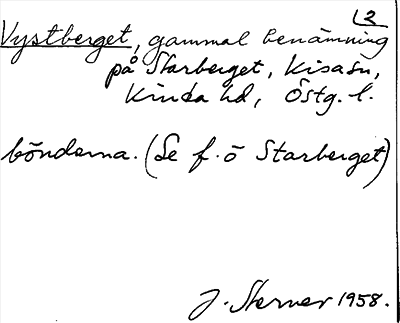 2
Vystberget, gammal benämning
på Starberget, Kisa sn,
Kinda hd, Östg. l.
bönderna. (Se f. ö Starberget)
J. Sterner 1958.